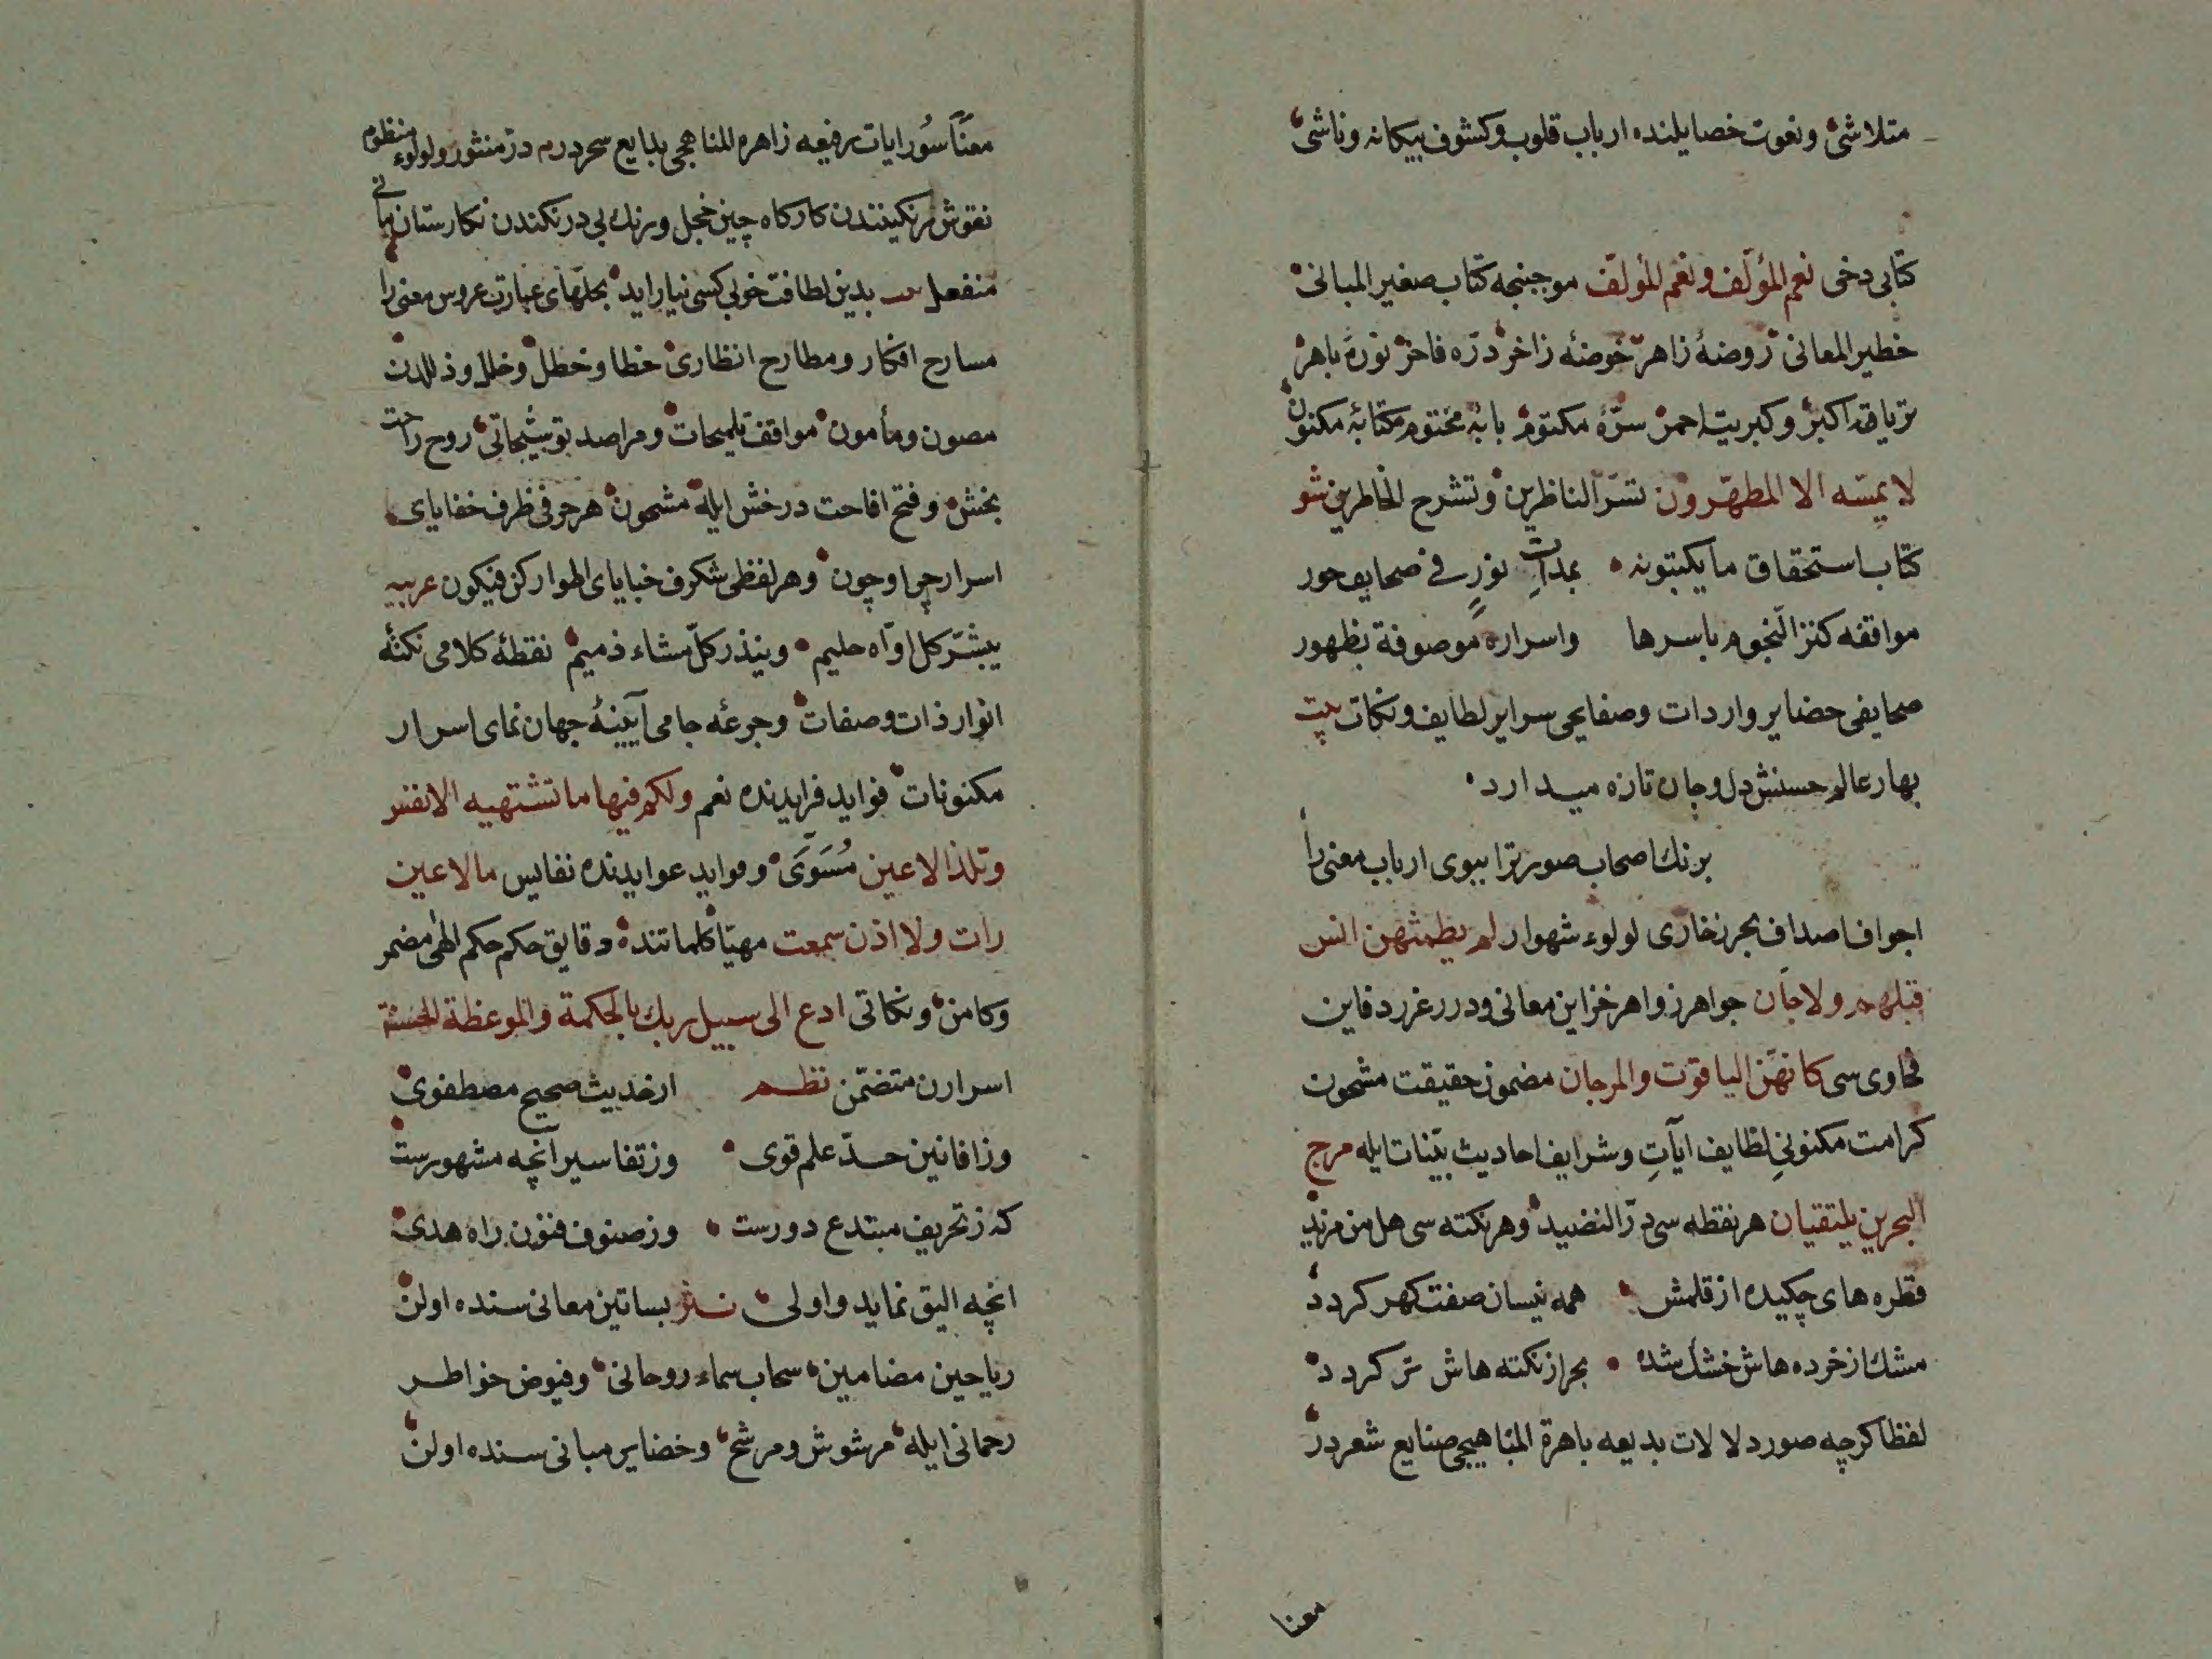 متلاشیٔ ونعوت خصایلنده ارباب قلوب وکشوف بیکانه وناشیٔ
کتابی دخی نعم المؤلَّف ونعم المؤلِّف موجبنجه کتاب صغیر المبانی
خطیر المعانی روضۀ زاهر حوضۀ زاخر درّه فاخر نورۀ باهر
تریاق اکبر وکبریت احمر سرّۀ مکتوم بابۀ مختوم کتابۀ مکنون
لا یمسّه الا المطهّرون تسرّ الناظرین وتشرح الخاطرین شو
کتاب استحقاق ما یکتبونه بمدادٍ نورٍ فی صحایف حور
مواقفه کنز النجوم باسرها واسراره موصوفة بظهور
صحایفی حضایر واردات وصفایحی سرایر لطایف ونکات بیت
بهار عالم حسنش دل وجان تازه میدارد
برنك اصحاب صورترا ببوی ارباب معنی را
اجواف اصداف بحر زخاری لولوء شهوار لم یطمثهن انس
قبلهم ولا جان جواهر زواهر خزاین معانی ودرر غرر دفاین
فحاوی سی کانهّن الیاقوت والمرجان مضمون حقیقت مشحون
کرامت مکنونی لطایف ایآتِ وشرایف احادیث بیّنات ایله مرج
البحرین یلتقیان هر نقطه سی درّ النضید وهر نکته سی هل من مزید
قطره های چکیده از قلمش همه نیسان صفت کهر کردد
مشك از خرده هاش خشك شده بحر از نکته هاش تر کردد
لفظا کرچه صور دلالات بدیعه باهرة المناهجی صنایع شعر در
معنا
معنًا سُور ایات رفیعه زاهره المناهجی بدایع سحر درم درّ منثور ولولوء منظوم
نقوش رنکینندن کارکاه چین خجل ورنك بی درنکندن نکارستان مانی
منفعل بیت بدین لطافت خوبی کسی نیاراید بحلّهای عبارت عروس معنی را
مسارح افکار ومطارح انظاری خطا وخطل وخلل وذللدن
مصون ومأمون مواقف تلمیحات ومراصد توشیحاتی روح راحت
بخش وفتح افاحت درخش ایله مشحون هر حرفی ظرف خفایای
اسرار چرا وچون وهر لفظی شکرف خبایای اطوار کن فیکون عربیه
یبشّر کل اوّاه حلیم وینذر کلّ مشاء ذمیم نقطۀ کلامی نکتۀ
انوار ذات وصفات وجرعۀ جامی آیینۀ جهان نمای اسرار
مکنونات فواید فرایدنده نعم ولکم فیها ما تشتهیه الانفس
وتلذ الاعین مُسَوَّی وموایده عوایدنده نفایس ما لا عین
رات ولا اذن سمعت مهیّا کلماتنده دقایق حکم حکم الهی مضمر
وکامن ونکاتی ادع الی سبیل ربك بالحکمة والموعظة الحسنة
اسرارن متضمّن نظم از حدیث صحیح مصطفوی
وز افانین حدّ علم قوی وز تفاسیر انچه مشهورست
که ز تحریف مبتدع دورست وز صنوف فنون راه هدی
انچه الیق نماید واولی نثر بساتین معانی سنده اولن
ریاحین مضامین سحاب سماء روحانی وفیوض خواطر
رحمانی ایله مرشوش ومرشح وخضایر مبانی سنده اولن